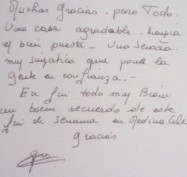 Muchas gracias. para Todo
Una casa agradable. limpia
y bien puesta. - Una Señora
muy simpatica que pone la
gente en confianza. -
En fin todo muy Bien
un buen recuerdo de este
fin de semana en Medina Celi
gracias